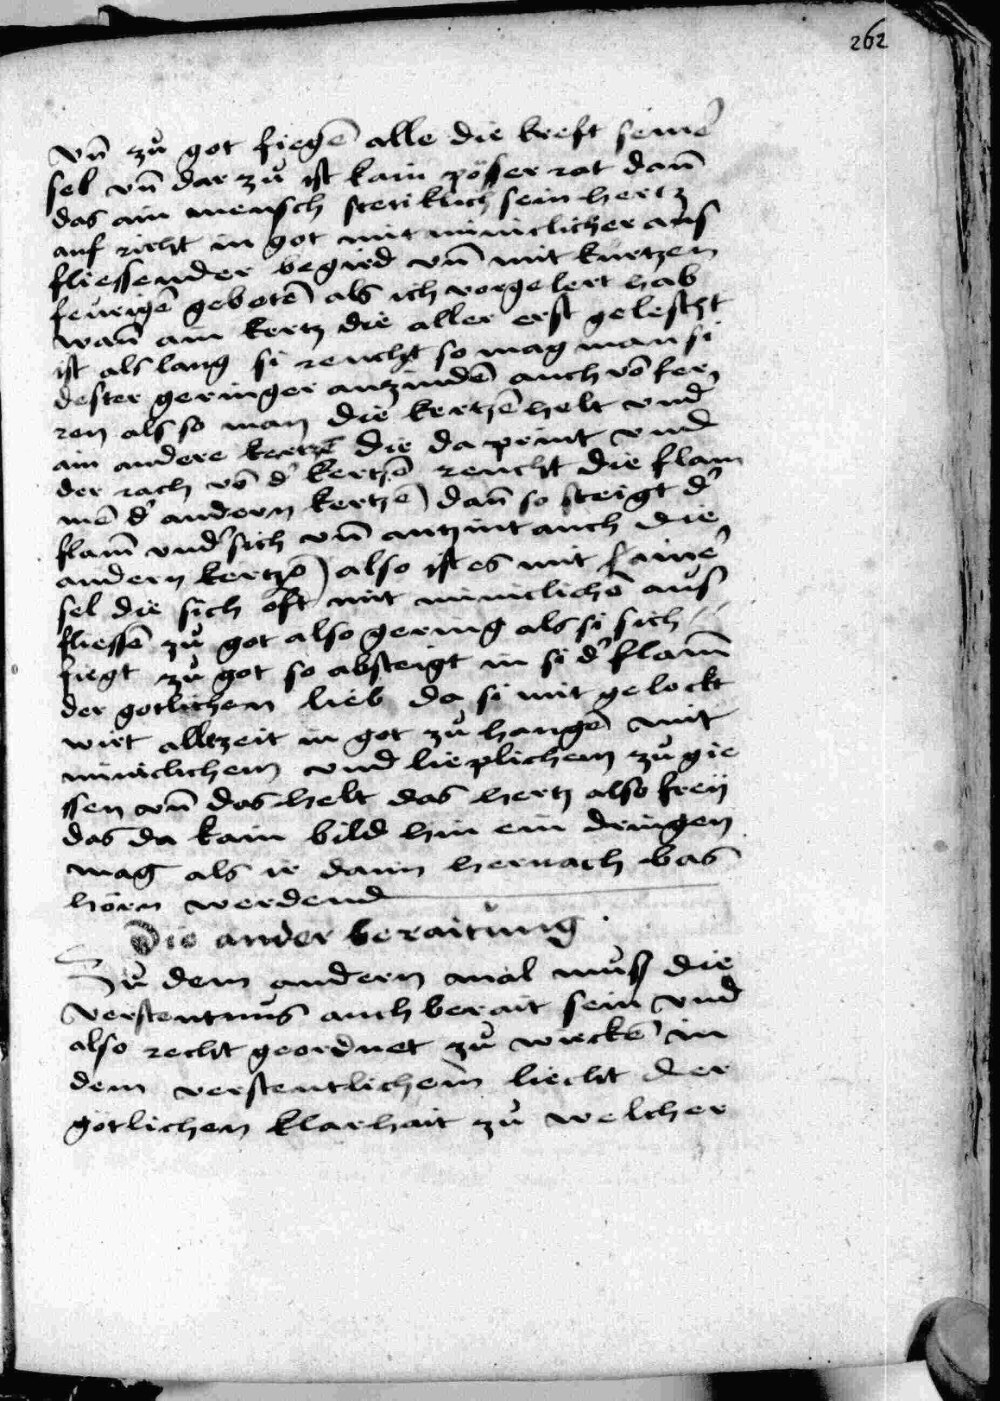 262
vn̄ zů got fiegē alle die kreft seiner̄
sel vn̄ dar zů ist kain pösser rat dan̄
das ain mensch stetiklich sein hertz
auf richt in got mit miniclicher aus
fliessender begird vn̄ mit kurtzen
feürigē gebetē als ich vorgelert hab
wan̄ ain kertz die aller erst gelescht
ist als lang si reücht so mag man si
dester geringer anzündē auch vō fer
ren als so man die kertzē helt vnd'
ain andere kertzē die da print vnd
der rach vō d' kertzē reucht die flam
mē d' andern kertzē dan̄ so steigt d'
flam̄ vnd' sich vn̄ antzint auch die
andern kertzē also ist es mit ainer̄
sel die sich oft mit miniclichē aus
fliessē zů got also gering als si sich
fiegt zů got so absteigt in si d' flam̄
der gotlichen lieb da si mit gelockt
wirt alltzeit in got zů hangē mit
miniclichem vnd lieplichem zů gie
ssen vn̄ das helt das hertz also freÿ
das da kain bild hin ein dringen
mag als ir dann hernach bas
hörn werdend
Die ander beraitung
Zů dem andern mal muß die
verstentnus auch berait sein vnd
also recht geordnet zů wirckē in
dem verstentlichem liecht der
götlichen klarhait zů welcher